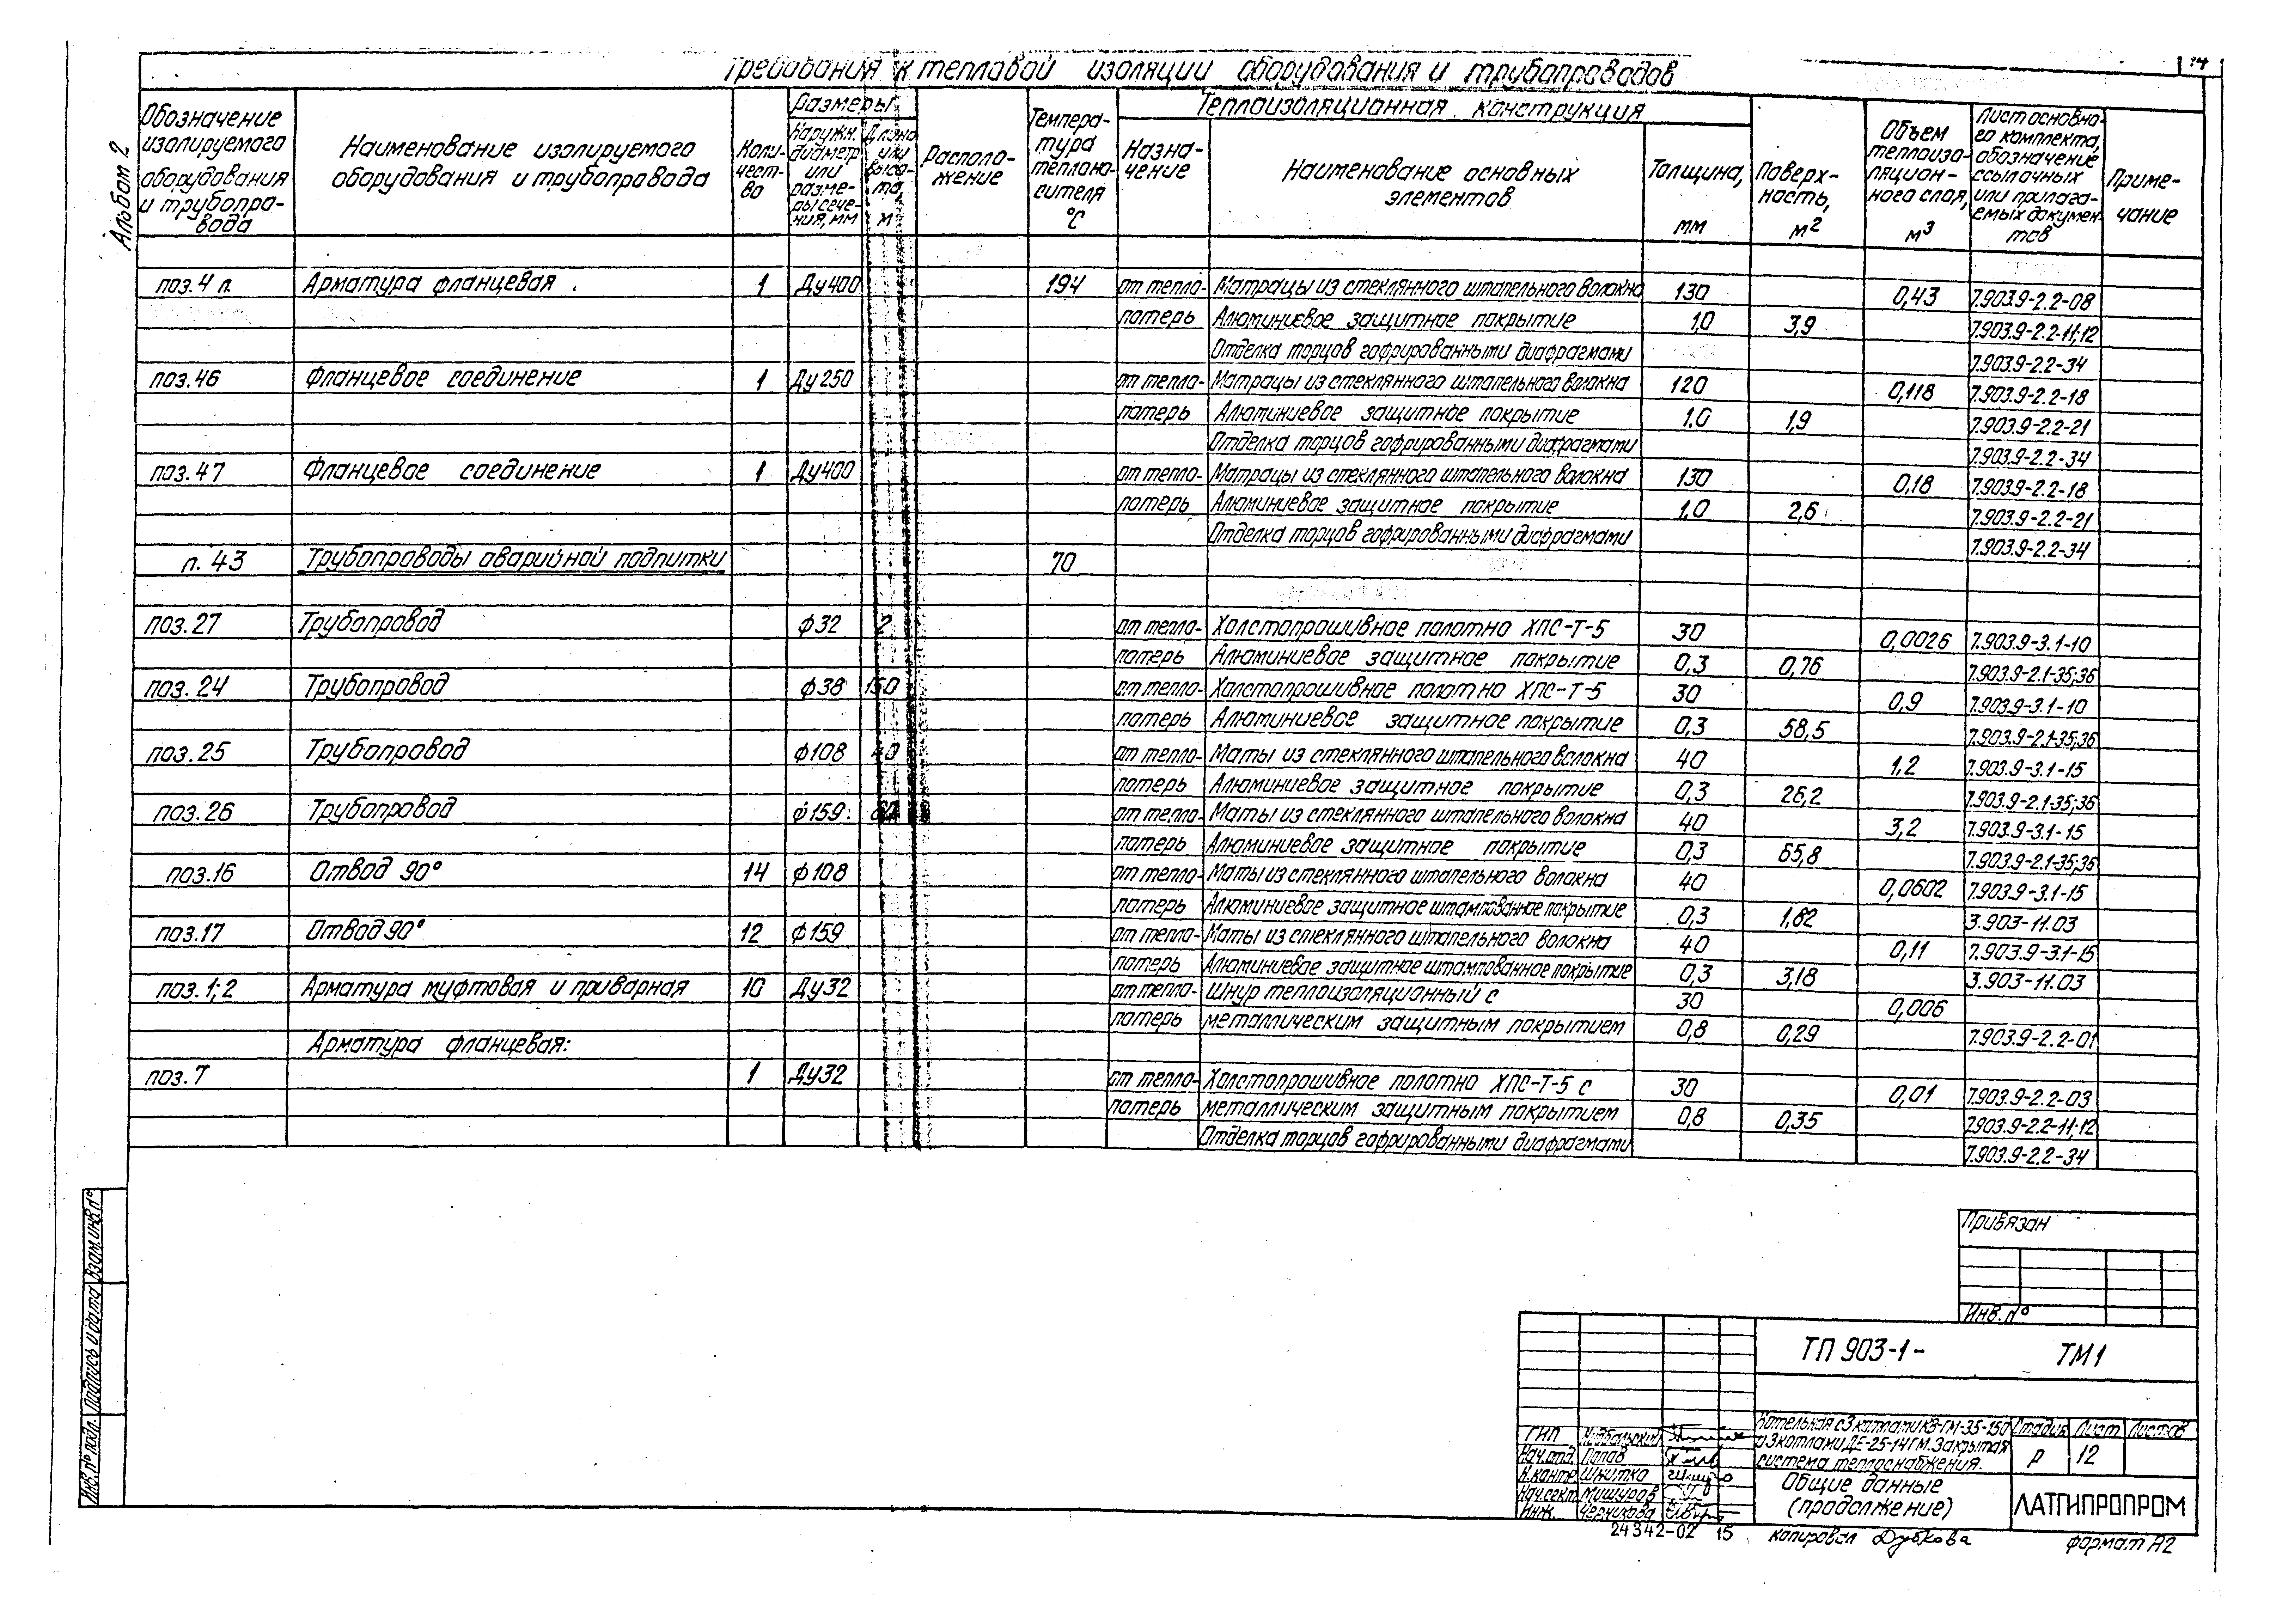 14
Альбом 2
Требования к тепловой изоляции оборудования и трубопроводов
Обозначение изолируемого оборудования и трубопровода
Наименование изолируемого оборудования и трубопровода
Количество
Размеры
Наружн. диаметр или размеры сечения, мм
Длина или высота, м
Расположение
Температура теплоносителя °С
Теплоизоляционная конструкция
Назначение
Наименование основных элементов
Толщина, мм
Поверхность, м2
Объем теплоизоляционного слоя, м3
Лист основного комплекта, обозначение ссылочных или прилагаемых документов
Примечание
поз. 4 п. Арматура фланцевая 1 Ду400 194 от тепло- Матрацы из стеклянного штапельного волокна 130 0,43 7.903.9-2.2-08
потерь Алюминиевое защитное покрытие 1,0 3,9 7.903.9-2.2-11;12
Отделка торцов гофрированными диафрагмами 7.903.9-2.2-34
поз. 46 Фланцевое соединение 1 Ду250 от тепло- Матрацы из стеклянного штапельного волокна 120 0,118 7.903.9-2.2-18
потерь Алюминиевое защитное покрытие 1.0 1,9 7.903.9-2.2-21
Отделка торцов гофрированными диафрагмами 7.903.9-2.2-34
поз. 47 Фланцевое соединение 1 Ду400 от тепло- Матрацы из стеклянного штапельного волокна 130 0,18 7.903.9-2.2-18
потерь Алюминиевое защитное покрытие 1,0 2,6 7.903.9-2.2-21
Отделка торцов гофрированными диафрагмами 7.903.9-2.2-34
п. 43 Трубопроводы аварийной подпитки 70
поз. 27 Трубопровод ф32 2 от тепло- Холстопрошивное полотно ХПС-Т-5 30 0,0026 7.903.9-3.1-10
потерь Алюминиевое защитное покрытие 0,3 0,76 7.903.9-2.1-35;36
поз. 24 Трубопровод ф38 150 от тепло- Холстопрошивное полотно ХПС-Т-5 30 0,9 7.903.9-3.1-10
потерь Алюминиевое защитное покрытие 0,3 58,5 7.903.9-2.1-35;36
поз. 25 Трубопровод ф108 40 от тепло- Маты из стеклянного штапельного волокна 40 1,2 7.903.9-3.1-15
потерь Алюминиевое защитное покрытие 0,3 26,2 7.903.9-2.1-35;36
поз. 26 Трубопровод ф159 от тепло- Маты из стеклянного штапельного волокна 40 3,2 7.903.9-3.1-15
потерь Алюминиевое защитное покрытие 0,3 65,8 7.903.9-2.1-35;36
поз. 16 Отвод 90° 14 ф108 от тепло- Маты из стеклянного штапельного волокна 40 0,0602 7.903.9-3.1-15
потерь Алюминиевое защитное штампованное покрытие 0,3 1,82 3.903-11.03
поз. 17 Отвод 90° 12 ф159 от тепло- Маты из стеклянного штапельного волокна 40 0,11 7.903.9-3.1-15
потерь Алюминиевое защитное штампованное покрытие 0,3 3,18 3.903-11.03
поз. 1; 2 Арматура муфтовая и приварная 10 Ду32 от тепло- Шнур теплоизоляционный с 30 0,006
потерь металлическим защитным покрытием 0,8 0,29 7.903.9-2.2-01
Арматура фланцевая:
поз. 7 1 Ду32 от тепло- Холстопрошивное полотно ХПС-Т-5 с 30 0,01 7.903.9-2.2-03
потерь металлическим защитным покрытием 0,8 0,35 7.903.9-2.2-11;12
Отделка торцов гофрированными диафрагмами 7.903.9-2.2-34
Инв. № подл. Подпись и дата Взам. инв. №
Привязан
Инв. №
ТП 903-1- ТМ1
ГИП
Нач. отд. Попов
Н. контр. Шнитко
Нач. сект. Мишуров
Инж. Черчикова
Котельная с 3 котлами КВ-ГМ-35-150
и 3 котлами ДЕ-25-14ГМ. Закрытая
система теплоснабжения.
Стадия Лист Листов
Р 12
Общие данные
(продолжение)
ЛАТГИПРОПРОМ
24342-02 15
копировал Дубкова
формат А2